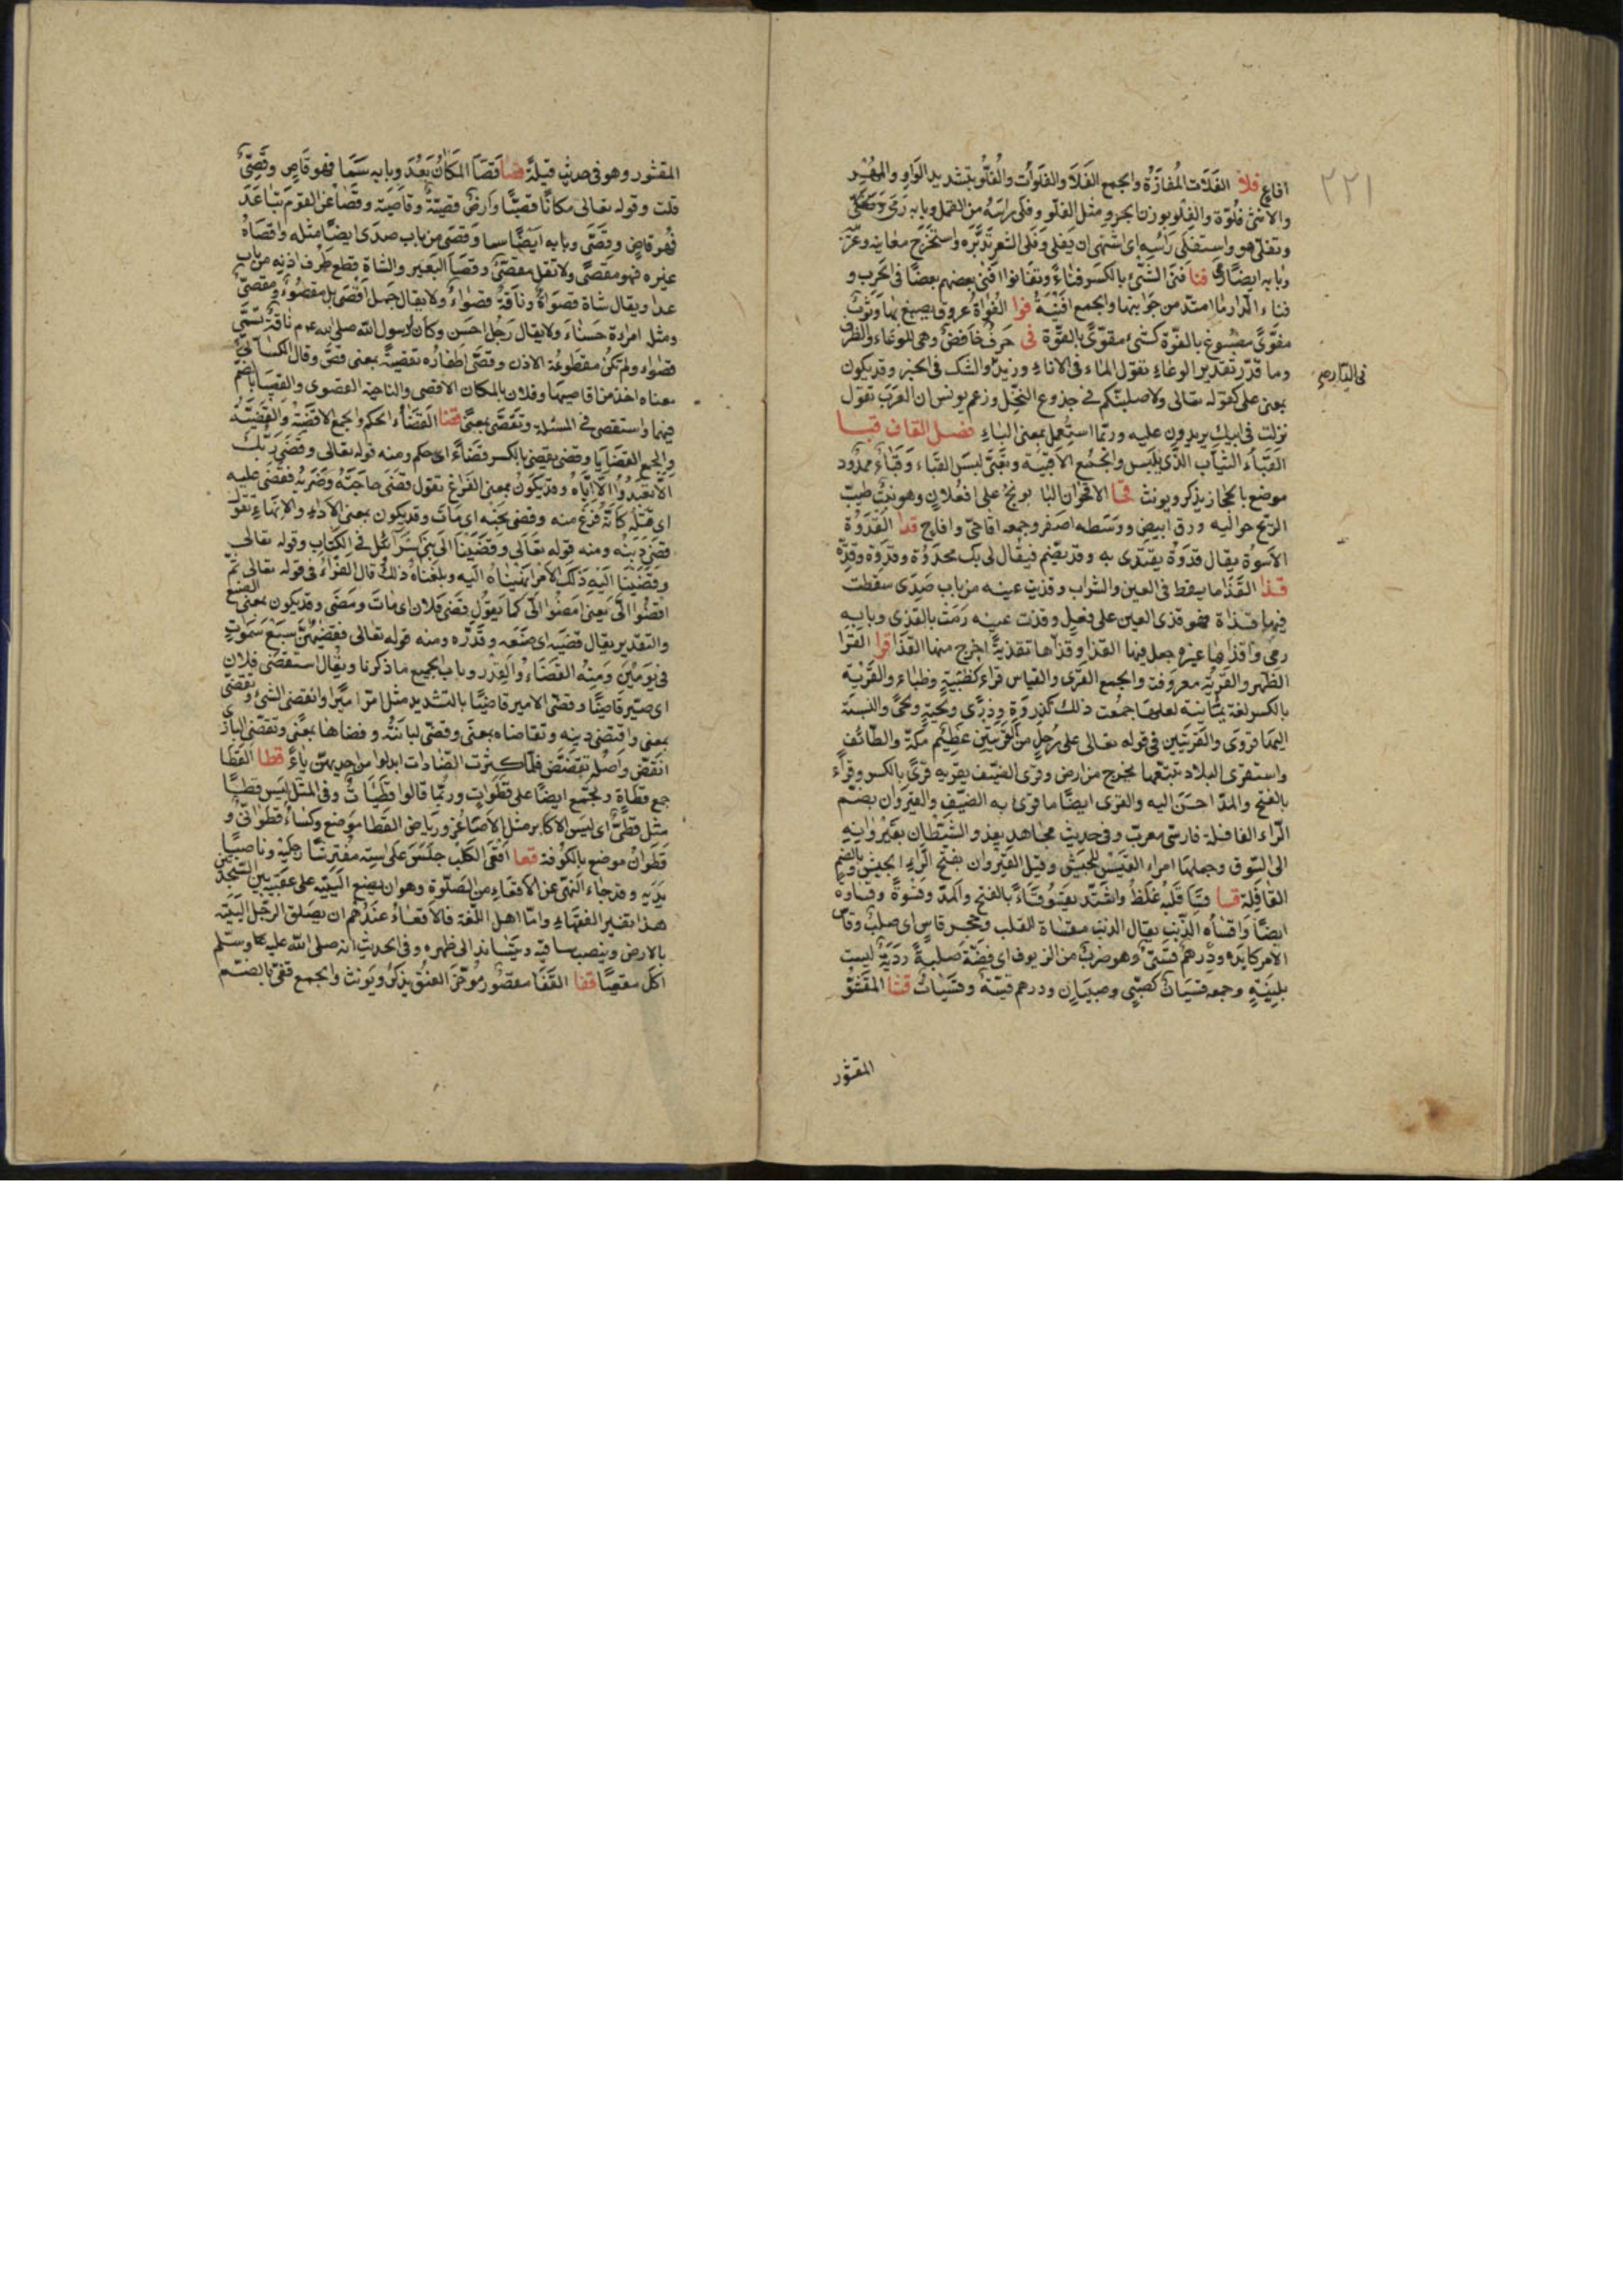 ٢٢١
افاع فلا الفَلَاة المُفازَة والجمع الفَلَا والفَلَوات والفُلُوّ بتشديد الواو والمُهْر
والانثى فلُوّة والفِلْو بوزن الجرو مثل الفلو وفلى راسه من القمل وبابه رمى
وتفلى هو واستفلى رَاسُه اى اشتهى ان يفلى وفلى الشعر تدبّره واستخرج معانيه
وبابه ايضا رمى فنا فنى الشئ بالكسر فناءً وتفانوا افنى بعضهم بعضًا فى الحرب و
فناء الدار ما امتدّ من جوانبها والجمع افنيَة فوا الفُوّة عروق يصبغ بها وثوب
مفوّى مصبوغ بالفوّة كشئ مقوّى بالقوّة فى حرف خافض وهى للوعاء والظرف
وما قدّر تقدير الوعاء تقول الماء فى الاناء وزيد فى الدار والشك فى الخبر وقد يكون
فى الدار صح
بمعنى على كقوله تعالى ولاصلبنّكم فى جذوع النخل وزعم يونس ان العرب تقول
نزلت فى ابيك يريدون عليه وربّما استعمل بمعنى الباء فصل القاف قبا
القَبَاء الثياب الذى يلبس والجمع الاقبية وتقبّى لبس القباء وقباء ممدود
موضع بالحجاز يذكر ويونث قحا الاقحوان البابونج على افعلان وهو نبت طيب
الريح حواليه ورق ابيض ووسطه اصفر وجمعه اقاحىّ واقاح قدا القدوة
الاسوة يقال قدوة يقتدى به وقد يضم فيقال لى بك قدوة وقدوة وقدة
قذا القَذَا ما يسقط فى العين والشراب وقذيت عينه من باب صدى سقطت
فيها قذاة فهو قذى العين على فعيل وقذت عينه رمت بالقذى وبابه
رمى واقذاها غيره جعل فيها القذا وقذّاها تقذية اخرج منها القذا قرا القرا
الظهر والقرية معروفة والجمع القرى والقياس قراء كظبية وظباء والقرية
بالكسر لغة يمانية لعلها جمعت ذلك كذروة وذرى ولحية ولحى والنسبة
اليها قروى والقريتين فى قوله تعالى على رجل من القريتين عظيم مكة والطائف
واستقرى البلاد تتبّعها يخرج من ارض وقرى الضيف يقريه قرى بالكسر وقراء
بالفتح والمد احسن اليه والقرى ايضا ما قرى به الضيف والقيروان بضم
الراء القافلة فارسى معرب وفى حديث مجاهد يغدو الشيطان بقيروانه
الى السوق وجعلها امراء القيس للجيش وقيل القيروان بفتح الراء الجيش وبالضم
القافلة قسا قسا قلبه غلظ واشتد يقسو قساء بالفتح والمد وقسوة وقساوة
ايضا واقساه الذنب يقال الذنب مقساة القلب وحجر قاس اى صلب وقاسى
الامر كابده ودرهم قسىّ وهو ضرب من الزيوف اى فضة صلبة ردية ليست
بلينة وجمعه قسيان كصبى وصبيان ودرهم قسية وقسيات قشا المقشوّ
المقشور
المقشور وهو فى حديث قيلة قصا قصا المكان بعد وبابه سما فهو قاص وقصىّ
قلت وقوله تعالى مكانًا قصيًّا وارض قصيّة وقاصية وقصا عن القوم تباعد
فهو قاص وقصى وبابه ايضا سما وقصى من باب صدى ايضا مثله واقصاه
غيره فهو مقصى ولا تقل مقصىّ وقصا البعير والشاة قطع طرف اذنه من باب
عدا ويقال شاة قصواء وناقة قصواء ولا يقال جمل اقصى بل مقصوّ ومقصىّ
ومثل امراءة حسناء ولا يقال رجل احسن وكان لرسول الله صلى الله عم ناقة تسمى
قصواء ولم تكن مقطوعة الاذن وقصّى اظفاره تقصية بمعنى قص وقال الكسائى
معناه اخذ من اقاصيها وفلان بالمكان الاقصى والناحية القصوى والقصيا بالضم
فيهما واستقصى فى المسئلة وتقصّى بمعنى قضا القضاء الحكم والجمع الاقضية والقضية
والجمع القضايا وقضى يقضى بالكسر قضاءً اى حكم ومنه قوله تعالى وقضى ربك
الا تعبدوا الا اياه وقد يكون بمعنى الفراغ تقول قضى حاجته وضربه فقضى عليه
اى قتله كانه فرغ منه وقضى نحبه اى مات وقد يكون بمعنى الاداء والانهاء تقول
قضى دينه ومنه قوله تعالى وقضينا الى بنى اسرائيل فى الكتاب وقوله تعالى
وقضينا اليه ذلك الامر انهيناه اليه وبلغناه ذلك قال الفراء فى قوله تعالى ثم
اقضوا الىّ يعنى امضوا الىّ كما يقول قضى فلان اى مات ومضى وقد يكون بمعنى الصنع
والتقدير يقال قضيه اى صنعه وقدّره ومنه قوله تعالى فقضيهن سبع سموات
فى يومين ومنه القضاء والقدر وباب الجميع ما ذكرنا ويقال استقضى فلان
اى صيّر قاضيًا وقضّى الامير قاضيًا بالتشديد مثل امّر اميرًا وانقضى الشئ وتقضّى
بمعنى واقتضى دينه وتقاضاه بمعنى وقضّى لبانته وقضاها بمعنى وتقضّى البازى
انقض واصله تقضّض فلما كثرت الضادات ابدلوا من احديهن ياء قطا القطا
جمع قطاة ويجمع ايضا على قطوات وربما قالوا قطيات وفى المثل ليس قطا
مثل قطىّ اى ليس الاكابر مثل الاصاغر ورياض القطا موضع وكساء قطوانىّ و
قطوان موضع بالكوفة قعا اقعى الكلب جلس على استه مفترشا رجليه وناصبا
يديه وقد جاء النهى عن الاقعاء من الصلوة وهو ان يضع اليتيه على عقبيه بين السجدتين
هذا تفسير الفقهاء واما اهل اللغة فالاقعاء عندهم ان يصلق الرجل اليتيه
بالارض وينصب ساقيه ويتساند الى ظهره وفى الحديث انه صلى الله عليه وسلم
اكل مقعيًا قفا القفا مقصور موخر العنق يذكر ويونث والجمع قفى بالضم